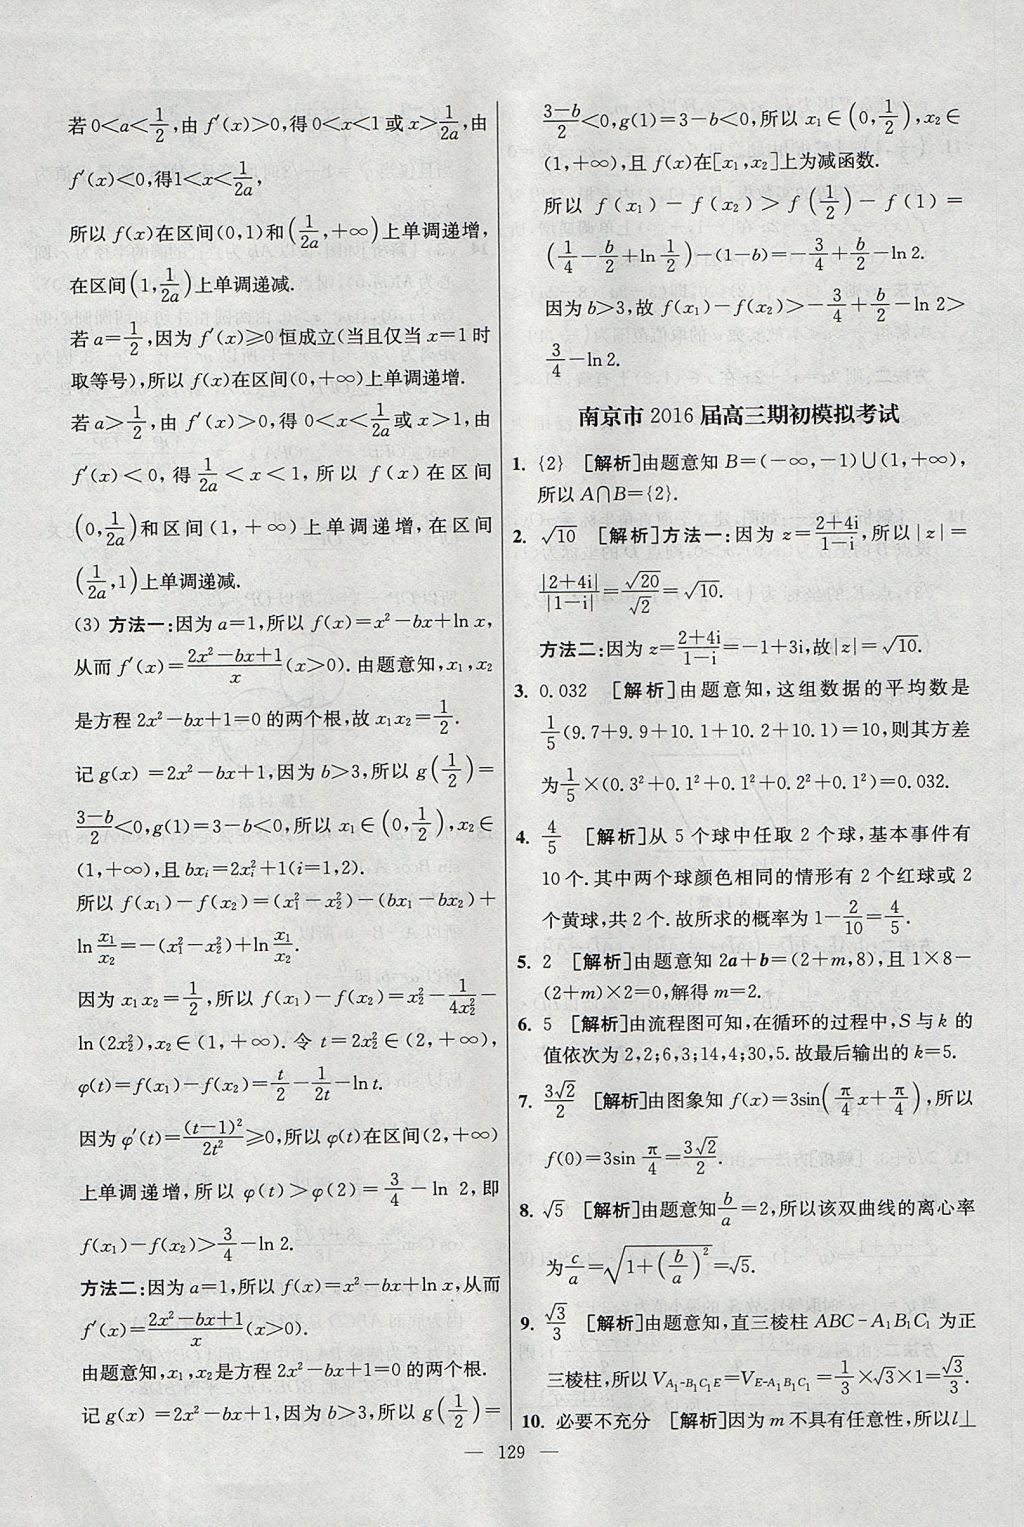 若0<a<1/2,由 f′(x)>0,得0<x<1或x>1/2a,由
f′(x)<0,得1<x<1/2a,
所以 f(x)在区间(0,1)和(1/2a,+∞)上单调递增,
在区间(1,1/2a)上单调递减.
若a=1/2,因为 f′(x)≥0恒成立(当且仅当x=1时
取等号),所以 f(x)在区间(0,+∞)上单调递增.
若 a>1/2,由 f′(x)>0,得 0<x<1/2a或x>1,由
f′(x)<0,得1/2a<x<1,所以 f(x)在区间
(0,1/2a)和区间(1,+∞)上单调递增,在区间
(1/2a,1)上单调递减.
(3) 方法一:因为a=1,所以 f(x)=x²-bx+ln x,
从而 f′(x)=(2x²-bx+1)/x(x>0).由题意知,x₁,x₂
是方程2x²-bx+1=0的两个根,故x₁x₂=1/2.
记g(x)=2x²-bx+1,因为b>3,所以 g(1/2)=
(3-b)/2<0,g(1)=3-b<0,所以x₁∈(0,1/2),x₂∈
(1,+∞),且bxᵢ=2xᵢ²+1(i=1,2).
所以 f(x₁)-f(x₂)=(x₁²-x₂²)-(bx₁-bx₂)+
ln x₁/x₂=-(x₁²-x₂²)+ln x₁/x₂.
因为x₁x₂=1/2,所以 f(x₁)-f(x₂)=x₂²-1/4x₂²-
ln(2x₂²),x₂∈(1,+∞).令 t=2x₂²∈(2,+∞),
φ(t)=f(x₁)-f(x₂)=t/2-1/2t-ln t.
因为φ′(t)=(t-1)²/2t²≥0,所以φ(t)在区间(2,+∞)
上单调递增,所以φ(t)>φ(2)=3/4-ln 2,即
f(x₁)-f(x₂)>3/4-ln 2.
方法二:因为a=1,所以 f(x)=x²-bx+ln x,从而
f′(x)=(2x²-bx+1)/x(x>0).
由题意知,x₁,x₂是方程2x²-bx+1=0的两个根.
记g(x)=2x²-bx+1,因为b>3,所以 g(1/2)=
(3-b)/2<0,g(1)=3-b<0,所以x₁∈(0,1/2),x₂∈
(1,+∞),且 f(x)在[x₁,x₂]上为减函数.
所以 f(x₁)-f(x₂)>f(1/2)-f(1)=
(1/4-b/2+ln 1/2)-(1-b)=-3/4+b/2-ln2.
因为b>3,故 f(x₁)-f(x₂)>-3/4+b/2-ln 2>
3/4-ln2.
南京市 2016 届高三期初模拟考试
1. {2} [解析]由题意知B=(-∞,-1)∪(1,+∞),
所以A∩B={2}.
2. √10 [解析]方法一:因为z=(2+4i)/(1-i),所以|z|=
|2+4i|/|1-i|=√20/√2=√10.
方法二:因为z=(2+4i)/(1-i)=-1+3i,故|z|=√10.
3. 0.032 [解析]由题意知,这组数据的平均数是
1/5(9.7+9.9+10.1+10.2+10.1)=10,则其方差
为1/5×(0.3²+0.1²+0.1²+0.2²+0.1²)=0.032.
4. 4/5 [解析]从5个球中任取2个球,基本事件有
10个.其中两个球颜色相同的情形有2个红球或2
个黄球,共2个.故所求的概率为1-2/10=4/5.
5. 2 [解析]由题意知2a+b=(2+m,8),且1×8-
(2+m)×2=0,解得m=2.
6. 5 [解析]由流程图可知,在循环的过程中,S与k的
值依次为2,2;6,3;14,4;30,5.故最后输出的k=5.
7. 3√2/2 [解析]由图象知 f(x)=3sin(π/4 x+π/4),所以
f(0)=3sin π/4=3√2/2.
8. √5 [解析]由题意知b/a=2,所以该双曲线的离心率
为c/a=√(1+(b/a)²)=√5.
9. √3/3 [解析]由题意知,直三棱柱ABC-A₁B₁C₁为正
三棱柱,所以V_{A₁-B₁C₁E}=V_{E-A₁B₁C₁}=1/3×√3×1=√3/3.
10. 必要不充分 [解析]因为m不具有任意性,所以l⊥
— 129 —